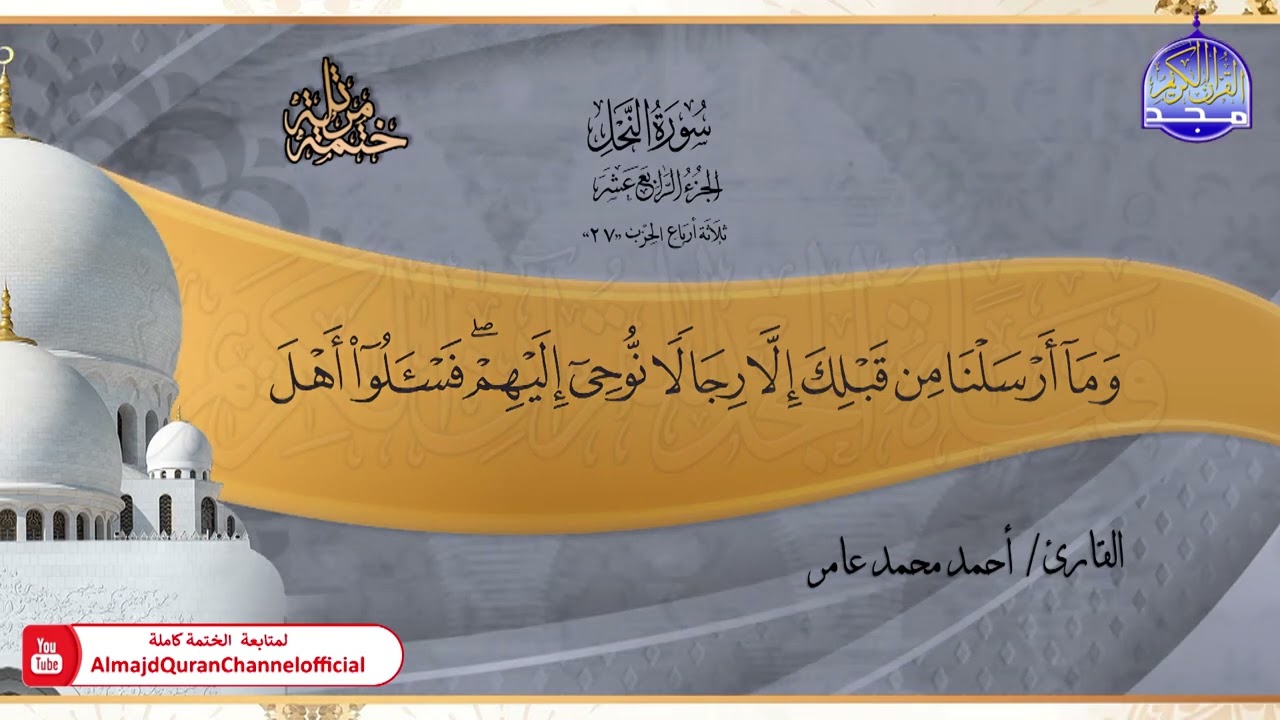 ختمة مرتلة
القرآن الكريم
مجد
سُورَةُ النَّحْلِ
الجُزْءُ الرَّابِعَ عَشَرَ
ثلاثة أرباع الحزب «٢٧»
وَمَآ أَرْسَلْنَا مِن قَبْلِكَ إِلَّا رِجَالًا نُّوحِىٓ إِلَيْهِمْ ۖ فَسْـَٔلُوٓا۟ أَهْلَ
القارئ / أحمد محمد عامر
You
Tube
لمتابعة الختمة كاملة
AlmajdQuranChannelofficial